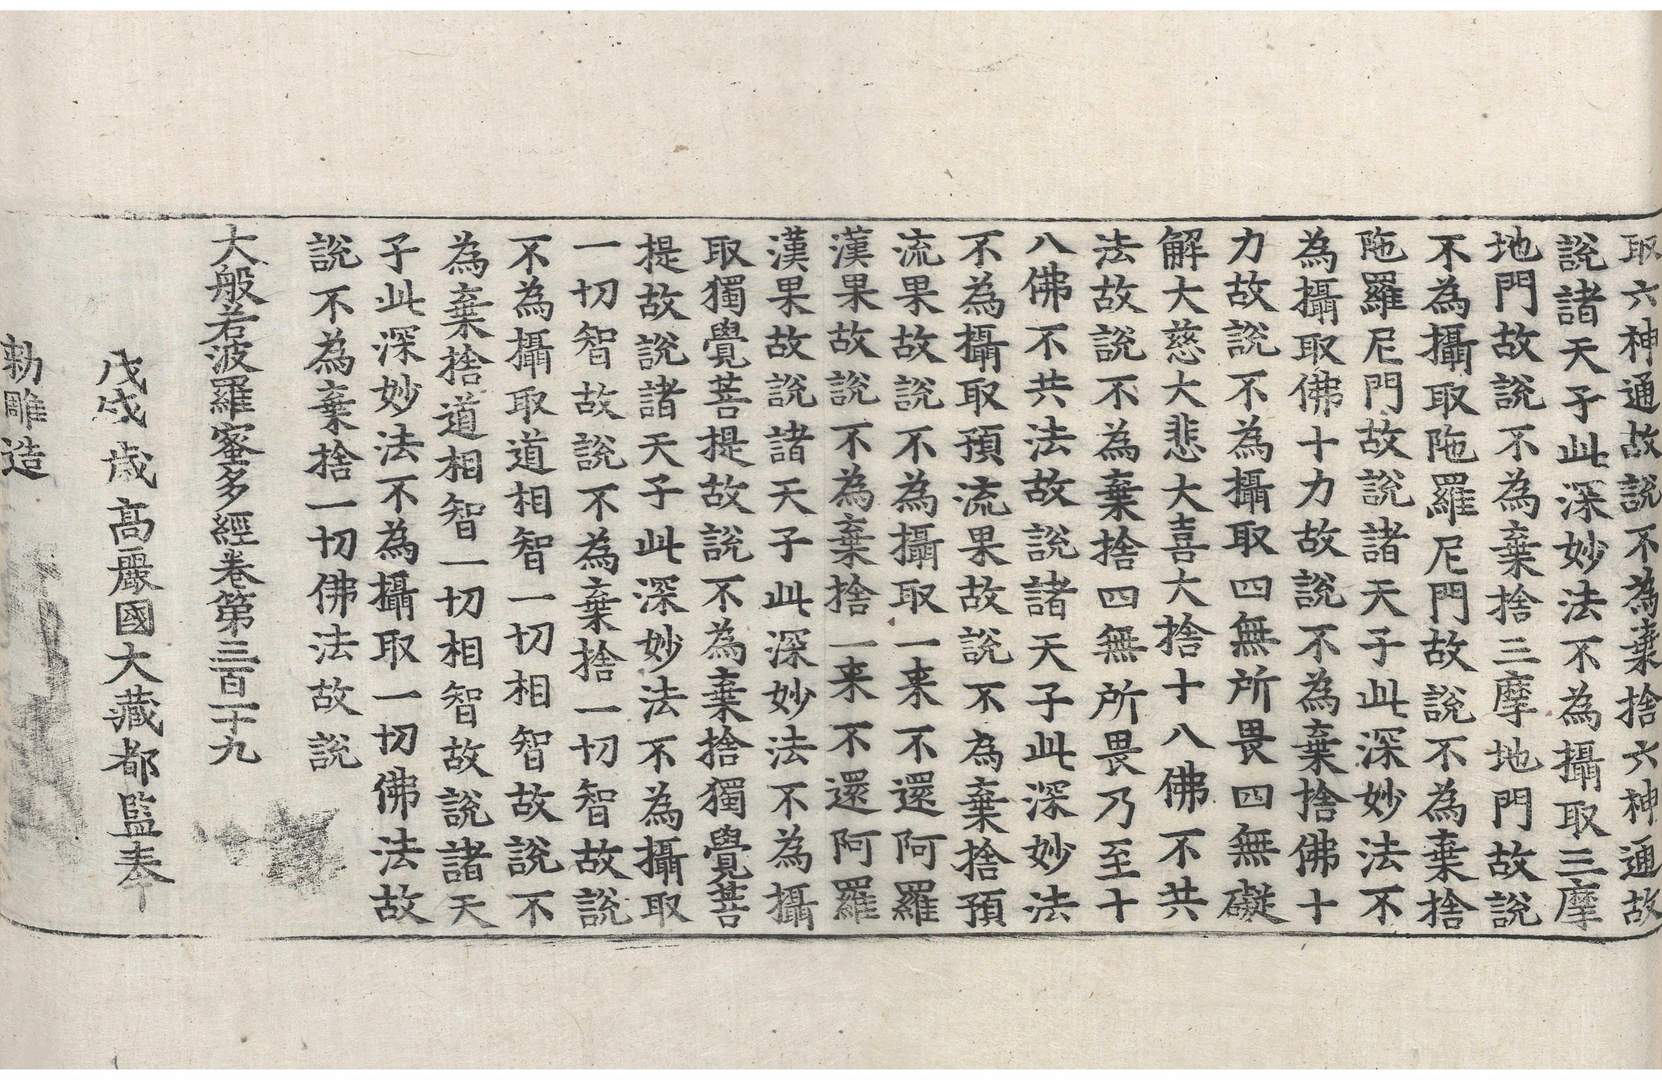 取六神通故說不為棄捨六神通故
說諸天子此深妙法不為攝取三摩
地門故說不為棄捨三摩地門故說
不為攝取陁羅尼門故說不為棄捨
陁羅尼門故說諸天子此深妙法不
為攝取佛十力故說不為棄捨佛十
力故說不為攝取四無所畏四無礙
解大慈大悲大喜大捨十八佛不共
法故說不為棄捨四無所畏乃至十
八佛不共法故說諸天子此深妙法
不為攝取預流果故說不為棄捨預
流果故說不為攝取一来不還阿羅
漢果故說不為棄捨一来不還阿羅
漢果故說諸天子此深妙法不為攝
取獨覺菩提故說不為棄捨獨覺菩
提故說諸天子此深妙法不為攝取
一切智故說不為棄捨一切智故說
不為攝取道相智一切相智故說不
為棄捨道相智一切相智故說諸天
子此深妙法不為攝取一切佛法故
說不為棄捨一切佛法故說
大般若波羅蜜多經卷第三百一十九
戊戌歳高麗國大藏都監奉
勑雕造